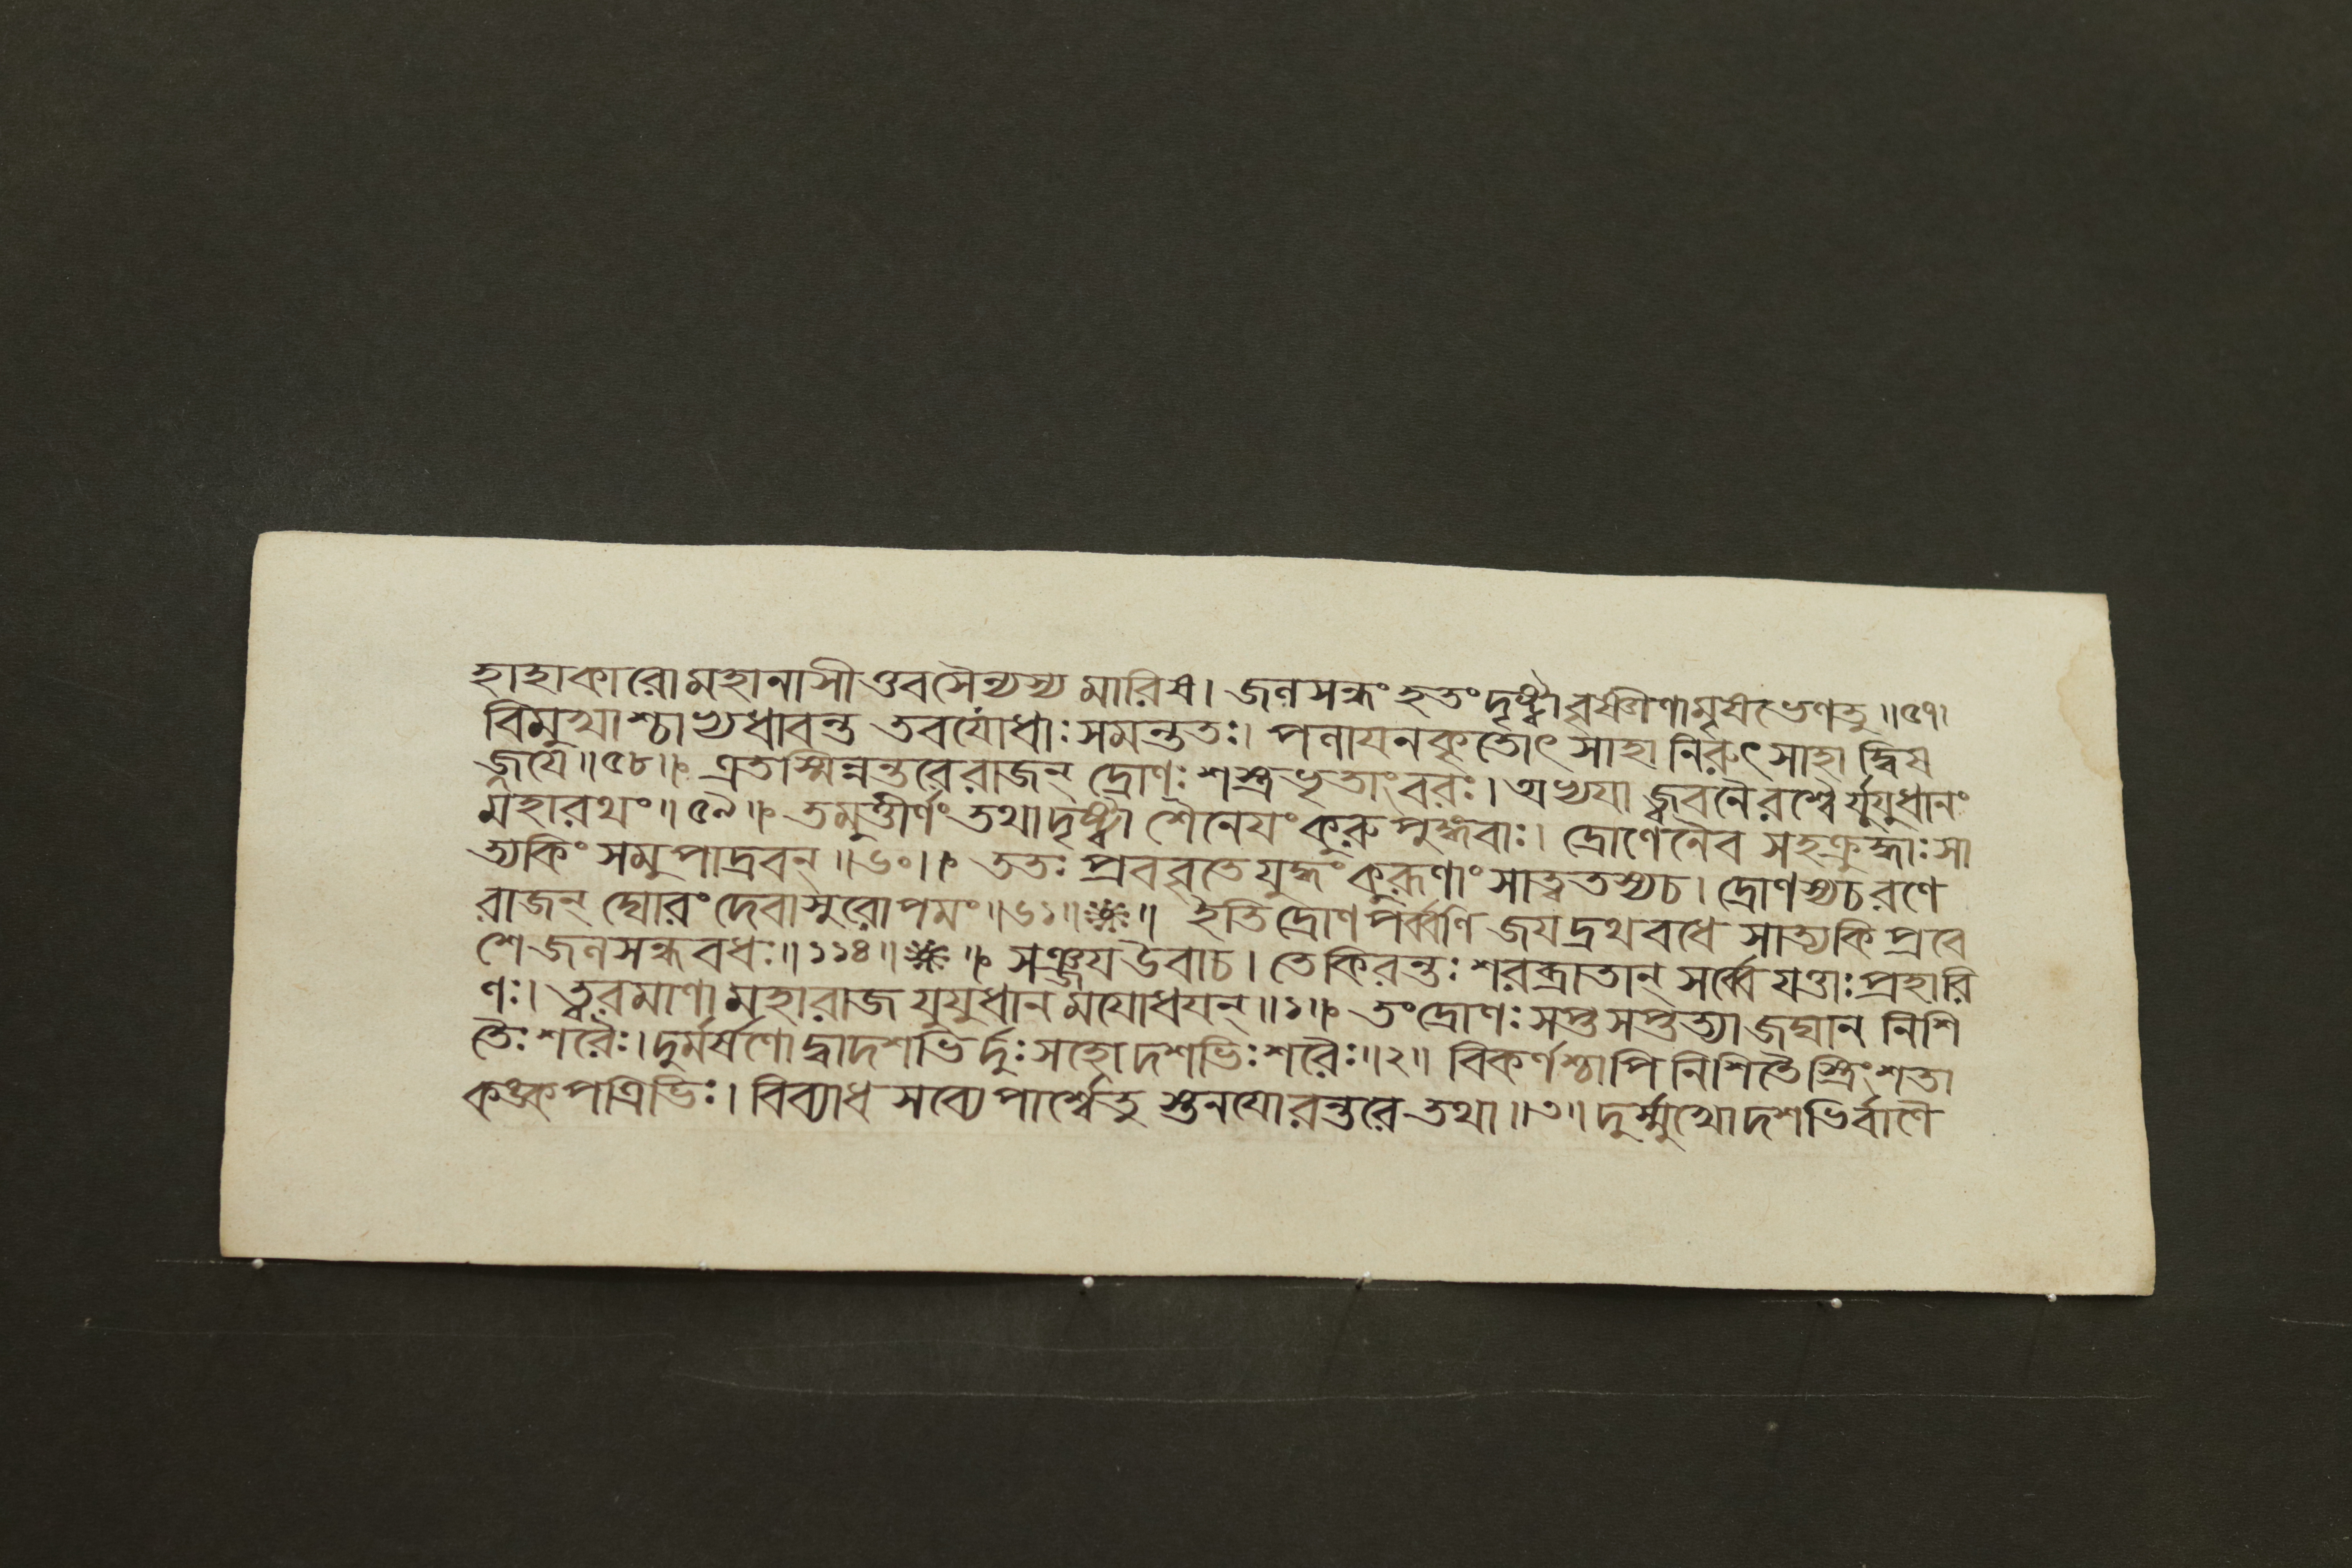 হাহাকারো মহানাসীত্তবসৈন্যস্য মারিষ। জলসন্ধং হতংদৃষ্ট্বা বৃষ্ণীণামৃষভেণতু॥৫৭।
বিমুখাশ্চাভ্যধাবন্ত তবযোধাঃ সমন্ততঃ। পলায়নকৃতোৎসাহা নিরুৎসাহা দ্বিষ
জ্জয়ে॥৫৮॥ এতস্মিন্নন্তরেরাজন্ দ্রোণঃ শস্ত্রভৃতাংবরঃ। অভ্যযাজ্জবনৈরশ্বৈর্যুযুধানং
মহারথং॥৫৯॥ তমুত্তীর্ণং তথাদৃষ্ট্বা শৈনেয়ংকুরুপুঙ্গবাঃ। দ্রোণেনৈব সহক্রুদ্ধাঃ সা
ত্যকিং সমুপাদ্রবন্॥৬০॥ ততঃ প্রববৃতে যুদ্ধং কুরূণাং সাত্বতস্যচ। দ্রোণস্যচরণে
রাজন্ ঘোরংদেবাসুরোপমং॥৬১॥ ॥ ইতিদ্রোণপর্ব্বণি জয়দ্রথবধে সাত্যকিপ্রবে
শে জলসন্ধবধঃ॥১১৪॥ ॥ সঞ্জয় উবাচ। তেকিরন্তঃ শরব্রাতান্ সর্ব্বে যত্তাঃ প্রহারি
ণঃ। ত্বরমাণা মহারাজ যুযুধানমযোধয়ন্॥১॥ তংদ্রোণঃ সপ্তসপ্তত্যা জঘান নিশি
তৈঃ শরৈঃ। দুর্মর্ষণো দ্বাদশভির্দুঃসহো দশভিঃ শরৈঃ॥২॥ বিকর্ণশ্চাপি নিশিতৈস্ত্রিংশতা
কঙ্কপত্রিভিঃ। বিব্যাধ সব্যে পার্শ্বেতু স্তনয়োরন্তরে তথা॥৩॥ দুর্ম্মুখোদশভির্বাণৈ